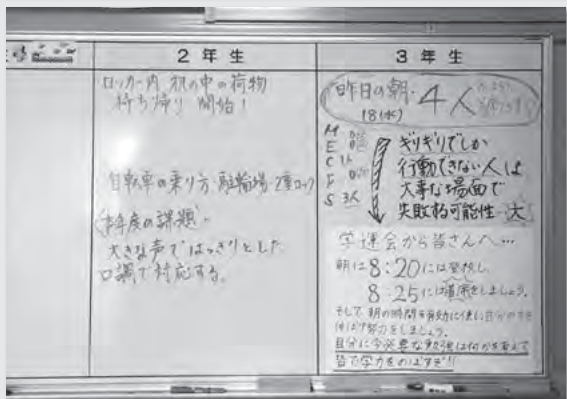 2年生
ロッカー内、机の中の荷物
持ち帰り 開始！
自転車の乗り方・駐輪場・2重ロック
本年度の課題
大きな声ではっきりとした
口調で対応する。
3年生
昨日の朝・4人
18(水)
M
E
C 1人
F
S 3人
ギリギリでしか
行動できない人は
大事な場面で
失敗する可能性 大
学運会から皆さんへ…
朝は8:20には登校し
8:25には着席をしましょう。
そして朝の時間を有効に使い自分の力を
伸ばす努力をしましょう。
自分に今必要な勉強は何かを考えて
皆で学力をのばすぞ!!